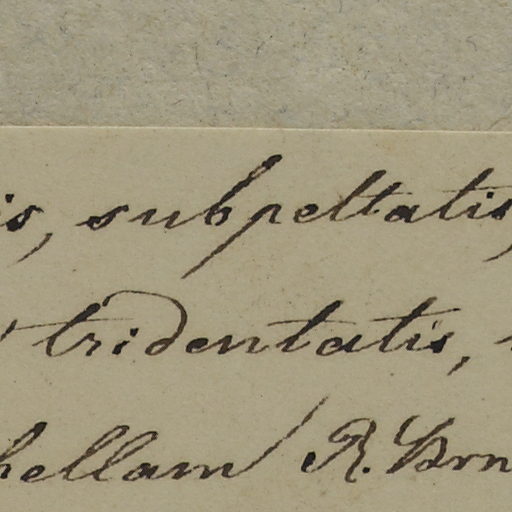 is, subpeltatis,
tridentatis,
hellam R. Brn